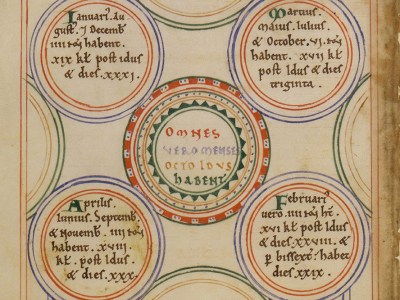 Ianuari'. Au
gust'. ⁊ Decemb'
IIII noñ
habent.
XIX kł post idus
& dies. XXXI.
Martius.
Maius. Iulius
& October. VI. noñ
habent. XVII kł
post Idus & dies
triginta.
OMNES
VERO MENSE
OCTO IDUS
HABENT
Aprilis.
Iunius. Septemb.
& Novemb. IIII noñ
habent. XVIII
kł. post Idus
& dies. XXX.
Februari'
vero. IIII noñ hñt.
XVI kł post Idus
& dies XXVIII. &
p bisext' habet
dies XXIX.